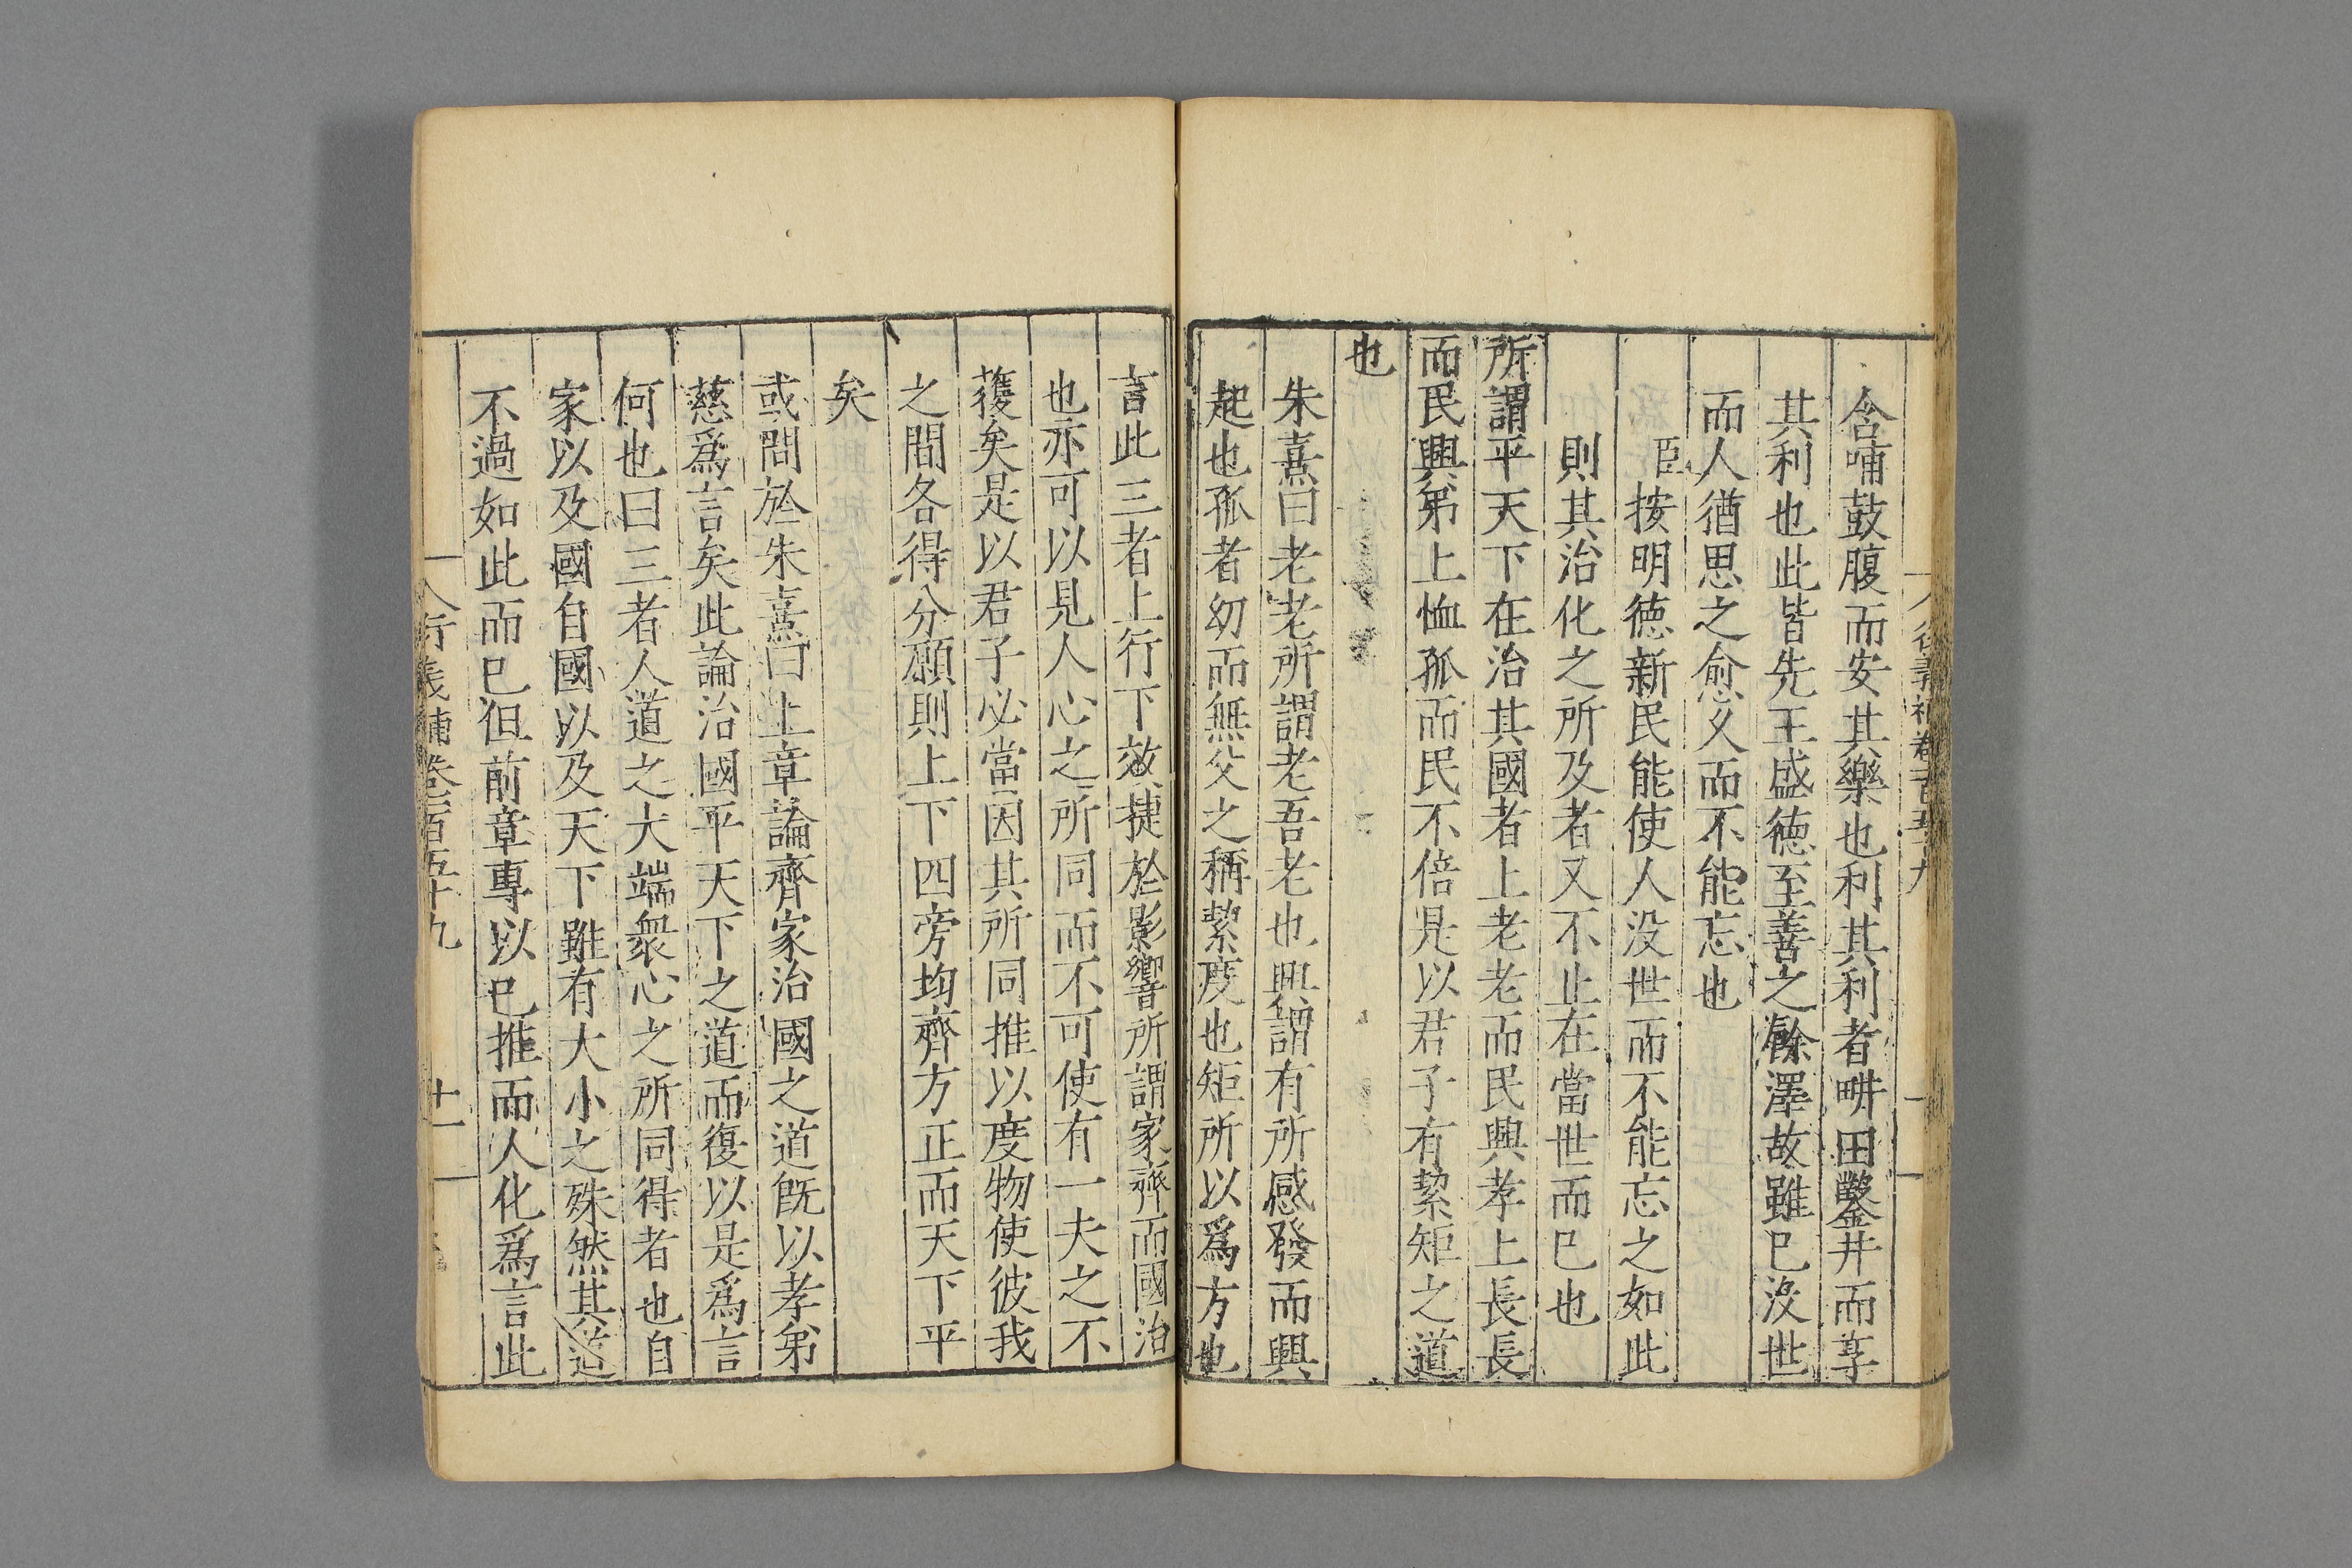 含哺鼓腹而安其樂也利其利者畊田鑿井而享
其利也此皆先王盛德至善之餘澤故雖已沒世
而人猶思之愈久而不能忘也
臣按明德新民能使人没世而不能忘之如此
則其治化之所及者又不止在當世而已也
所謂平天下在治其國者上老老而民興孝上長長
而民興弟上恤孤而民不倍是以君子有絜矩之道
也
朱熹曰老老所謂老吾老也興謂有所感發而興
起也孤者幼而無父之稱絜度也矩所以爲方也
言此三者上行下效捷於影響所謂家齊而國治
也亦可以見人心之所同而不可使有一夫之不
獲矣是以君子必當因其所同推以度物使彼我
之間各得分願則上下四旁均齊方正而天下平
矣
或問於朱熹曰上章論齊家治國之道旣以孝弟
慈爲言矣此論治國平天下之道而復以是爲言
何也曰三者人道之大端衆心之所同得者也自
家以及國自國以及天下雖有大小之殊然其道
不過如此而已但前章專以己推而人化爲言此
衍義補卷百五十九 十一